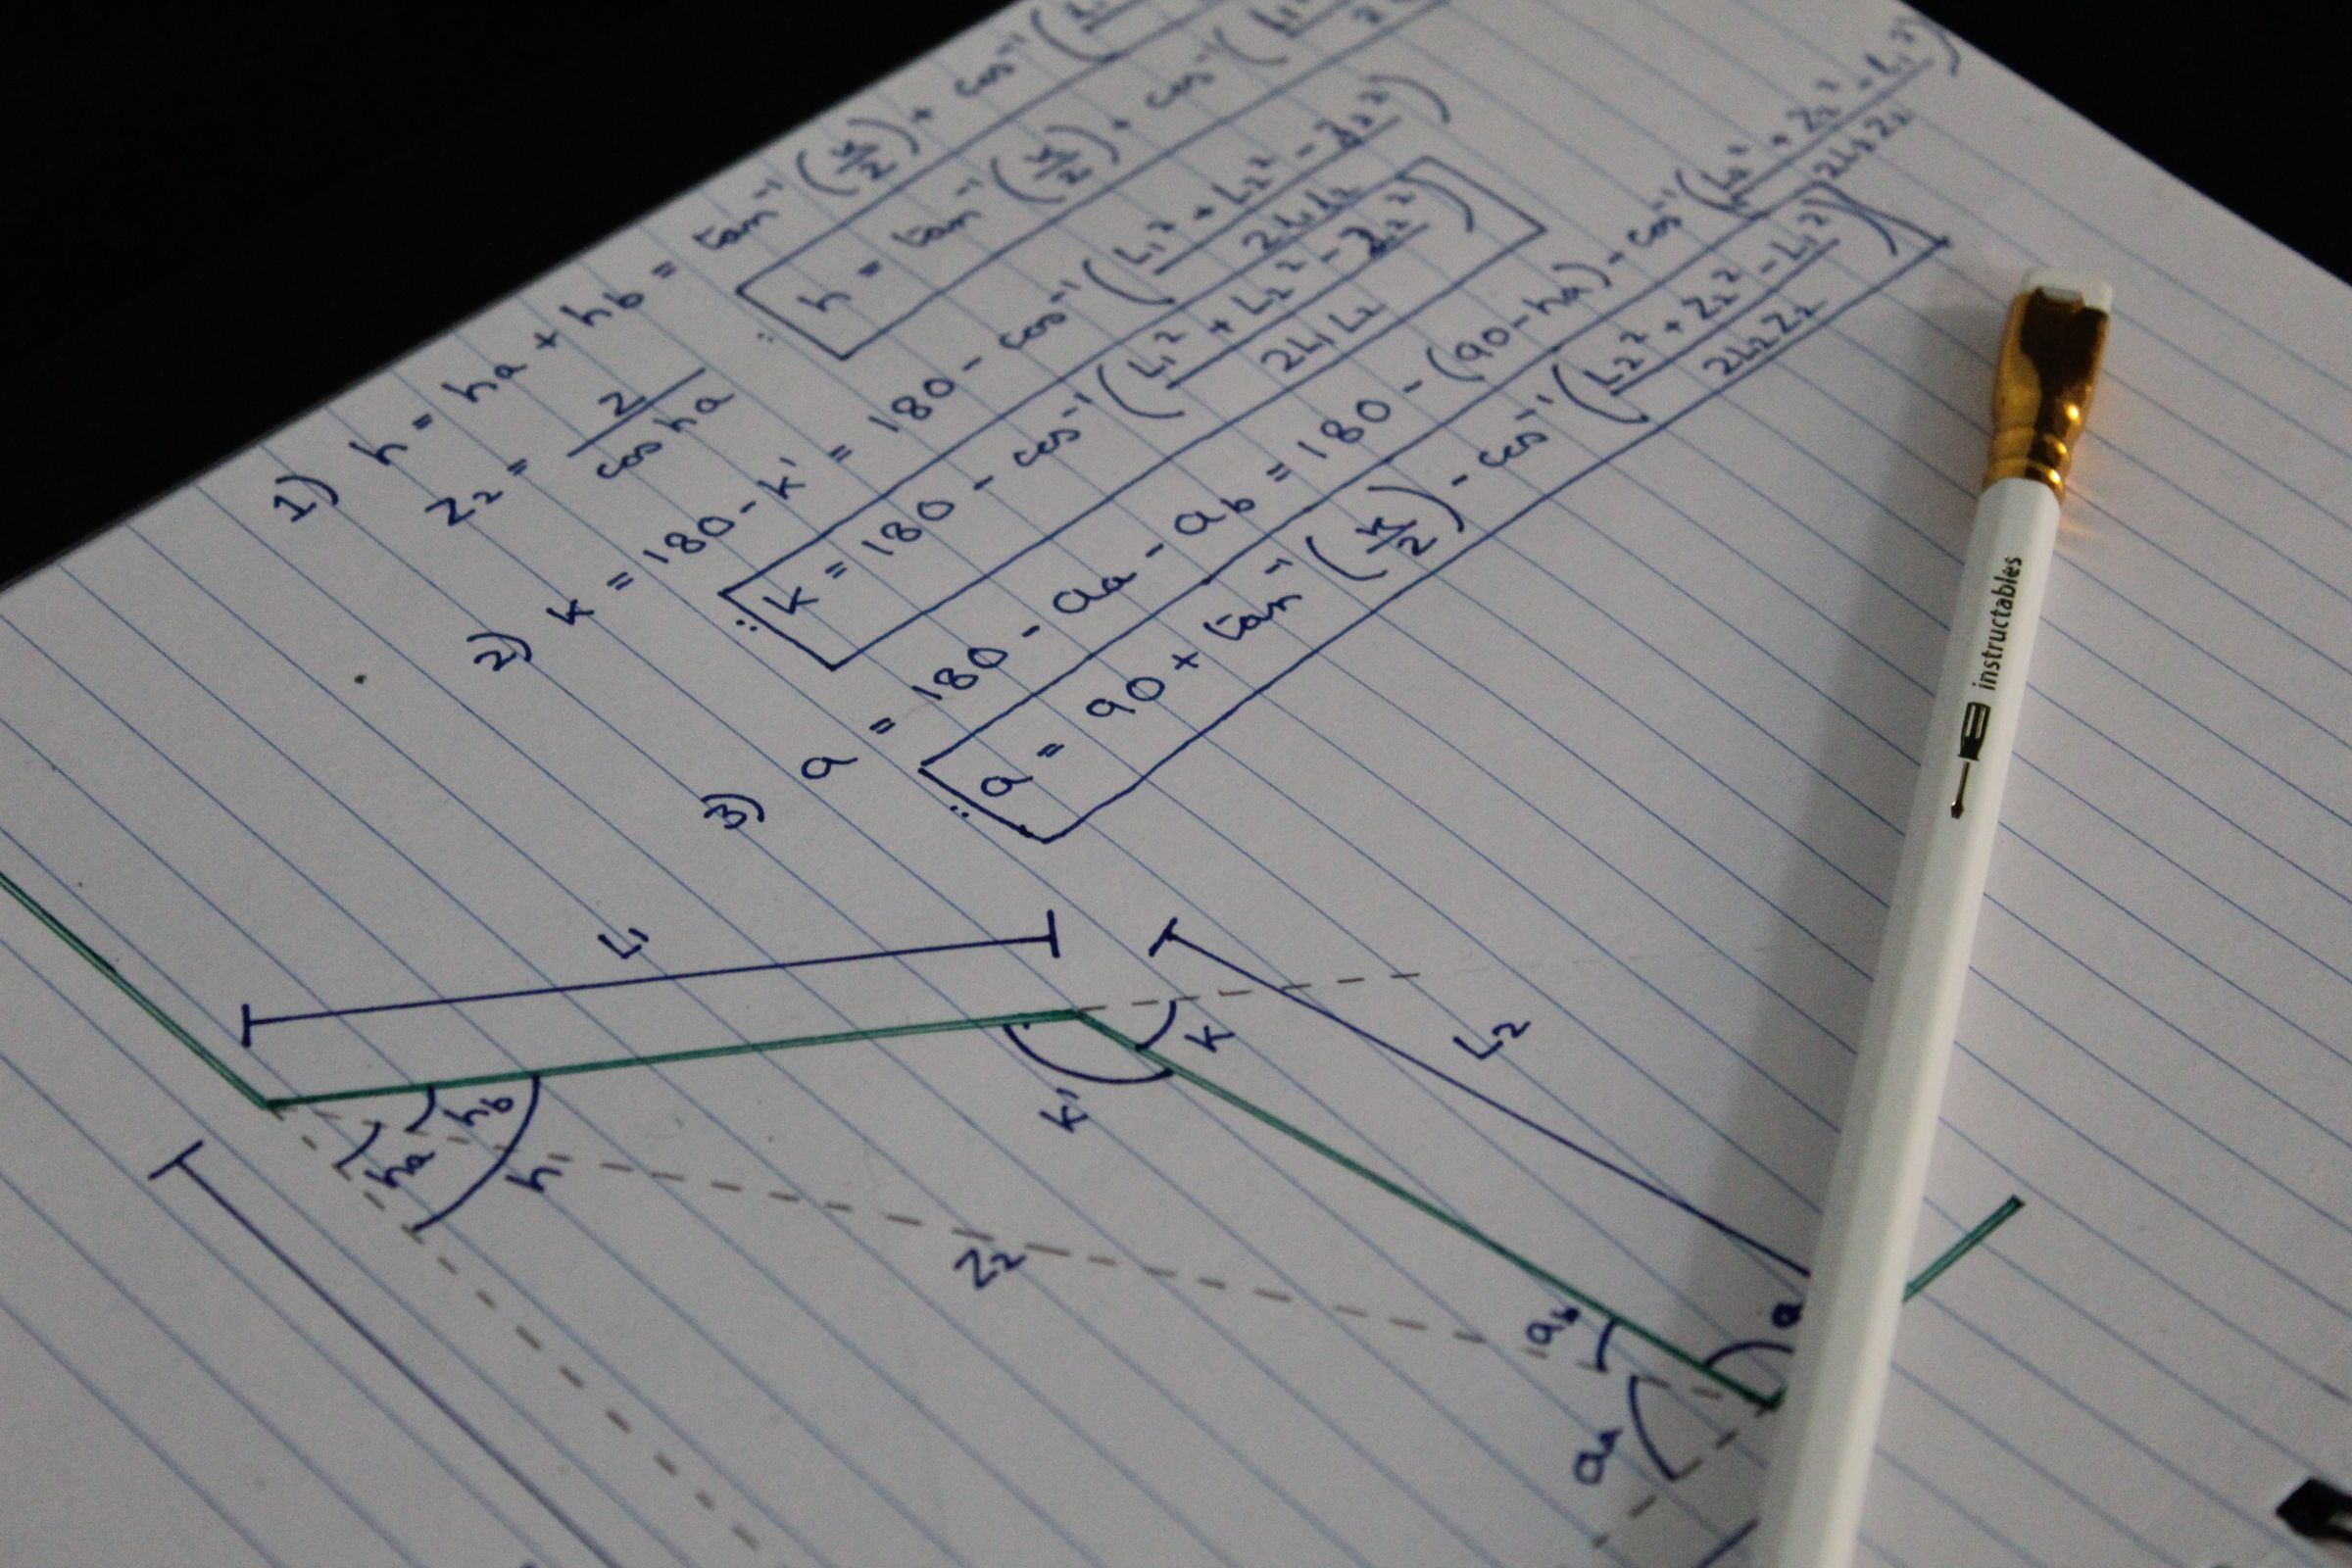 1) h = ha + hb = tan⁻¹(x/z) + cos⁻¹(
z₂ = z / cos ha
∴ h = tan⁻¹(x/z) + cos⁻¹(
2) k = 180 - k' = 180 - cos⁻¹((L₁² + L₂² - z₂²) / 2L₁L₂)
∴ k = 180 - cos⁻¹((L₁² + L₂² - z₂²) / 2L₁L₂)
3) a = 180 - aa - ab = 180 - (90 - ha) - cos⁻¹((L₂² + z₂² - L₁²) / 2L₂z₂)
∴ a = 90 + tan⁻¹(x/z) - cos⁻¹((L₂² + z₂² - L₁²) / 2L₂z₂)
L₁
L₂
k
k'
hb
ha
h
z₂
ab
a
aa
instructables